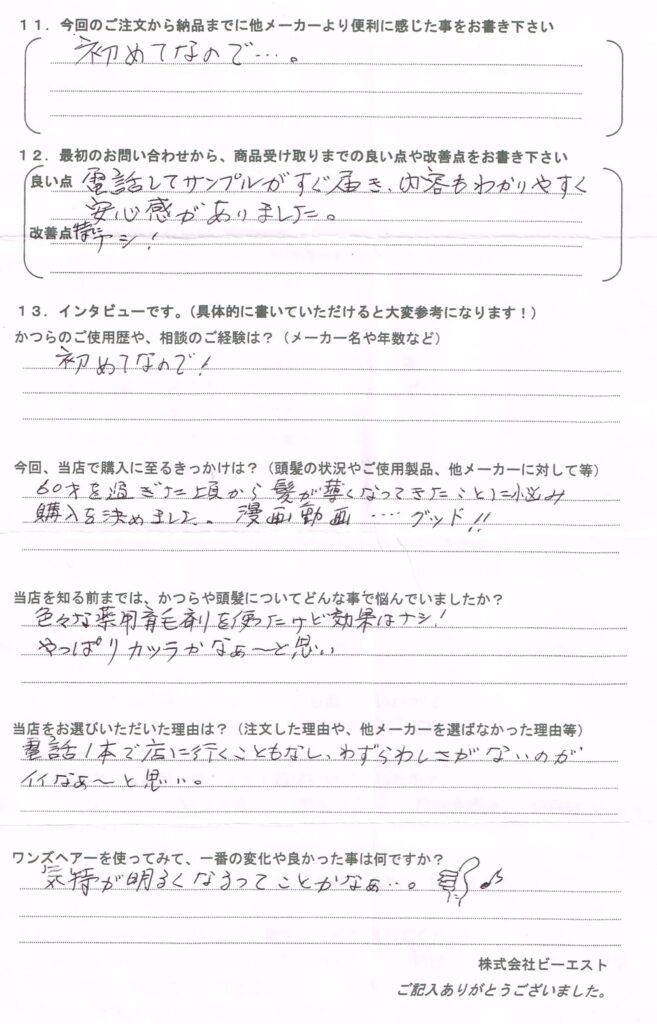 11．今回のご注文から納品までに他メーカーより便利に感じた事をお書き下さい
初めてなので…。
12．最初のお問い合わせから、商品受け取りまでの良い点や改善点をお書き下さい
良い点 電話してサンプルがすぐ届き、内容もわかりやすく
安心感がありました。
改善点 特にナシ！
13．インタビューです。（具体的に書いていただけると大変参考になります！）
かつらのご使用歴や、相談のご経験は？（メーカー名や年数など）
初めてなので！
今回、当店で購入に至るきっかけは？（頭髪の状況やご使用製品、他メーカーに対して等）
60才を過ぎた頃から髪が薄くなってきたことに悩み
購入を決めました。漫画動画…．グッド!!
当店を知る前までは、かつらや頭髪についてどんな事で悩んでいましたか？
色々な薬用育毛剤を使ったけど効果はナシ！
やっぱりカツラかなぁ～と思い
当店をお選びいただいた理由は？（注文した理由や、他メーカーを選ばなかった理由等）
電話1本で店に行くこともなし、わずらわしさがないのが
イイなぁ～と思い。
ワンズヘアーを使ってみて、一番の変化や良かった事は何ですか？
気持が明るくなるってことかなぁ…。♪
株式会社ビーエスト
ご記入ありがとうございました。